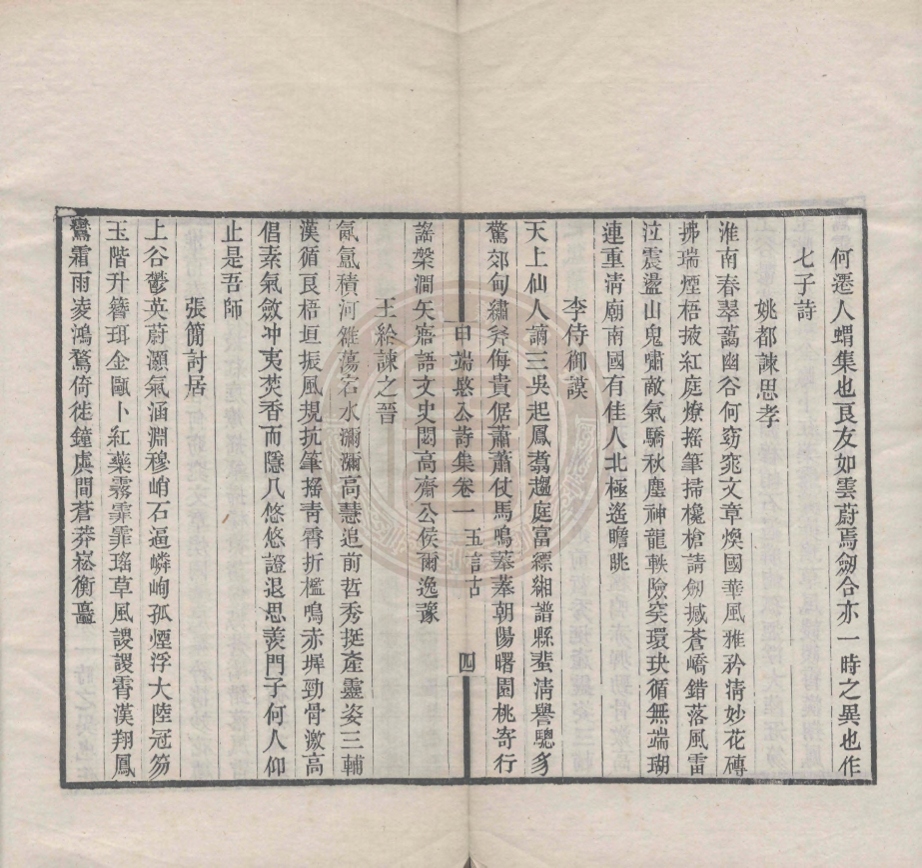 何遷人蝟集也良友如雲蔚焉劔合亦一時之異也作
七子詩
姚都諫思孝
淮南春翠藹幽谷何窈窕文章煥國華風雅矜清妙花磚
拂瑞煙梧掖紅庭燎搖筆掃欃槍請劔撼蒼嶠錯落風雷
泣震盪山鬼嘯敵氣驕秋塵神龍軼險突環玦循無端瑚
連重清廟南國有佳人北極遙瞻眺
李侍御謨
天上仙人謫三吳起鳳翥趨庭富縹緗譜縣蜚淸譽驄豸
驚郊甸繡斧侮貴倨蕭蕭仗馬鳴菶菶朝陽曙園桃寄行
謠槃澗矢寤語文史閟高齋公侯爾逸豫
申端愍公詩集卷一 五言古 四
王給諫之晉
氤氳積河雒蕩宕水瀰瀰高慧追前哲秀挺產靈姿三輔
漢循良梧垣振風規抗筆搖青霄折檻鳴赤墀勁骨激高
倡素氣斂冲夷焚香而隱几悠悠證退思羨門子何人仰
止是吾師
張簡討居
上谷鬱英蔚灝氣涵淵穆峭石逼嶙峋孤煙浮大陸冠笏
玉階升簪珥金甌卜紅藥霧霏霏瑤草風謖謖霄漢翔鳳
鸞霜雨凌鴻鶩倚徙鐘虡間蒼莽崧衡矗